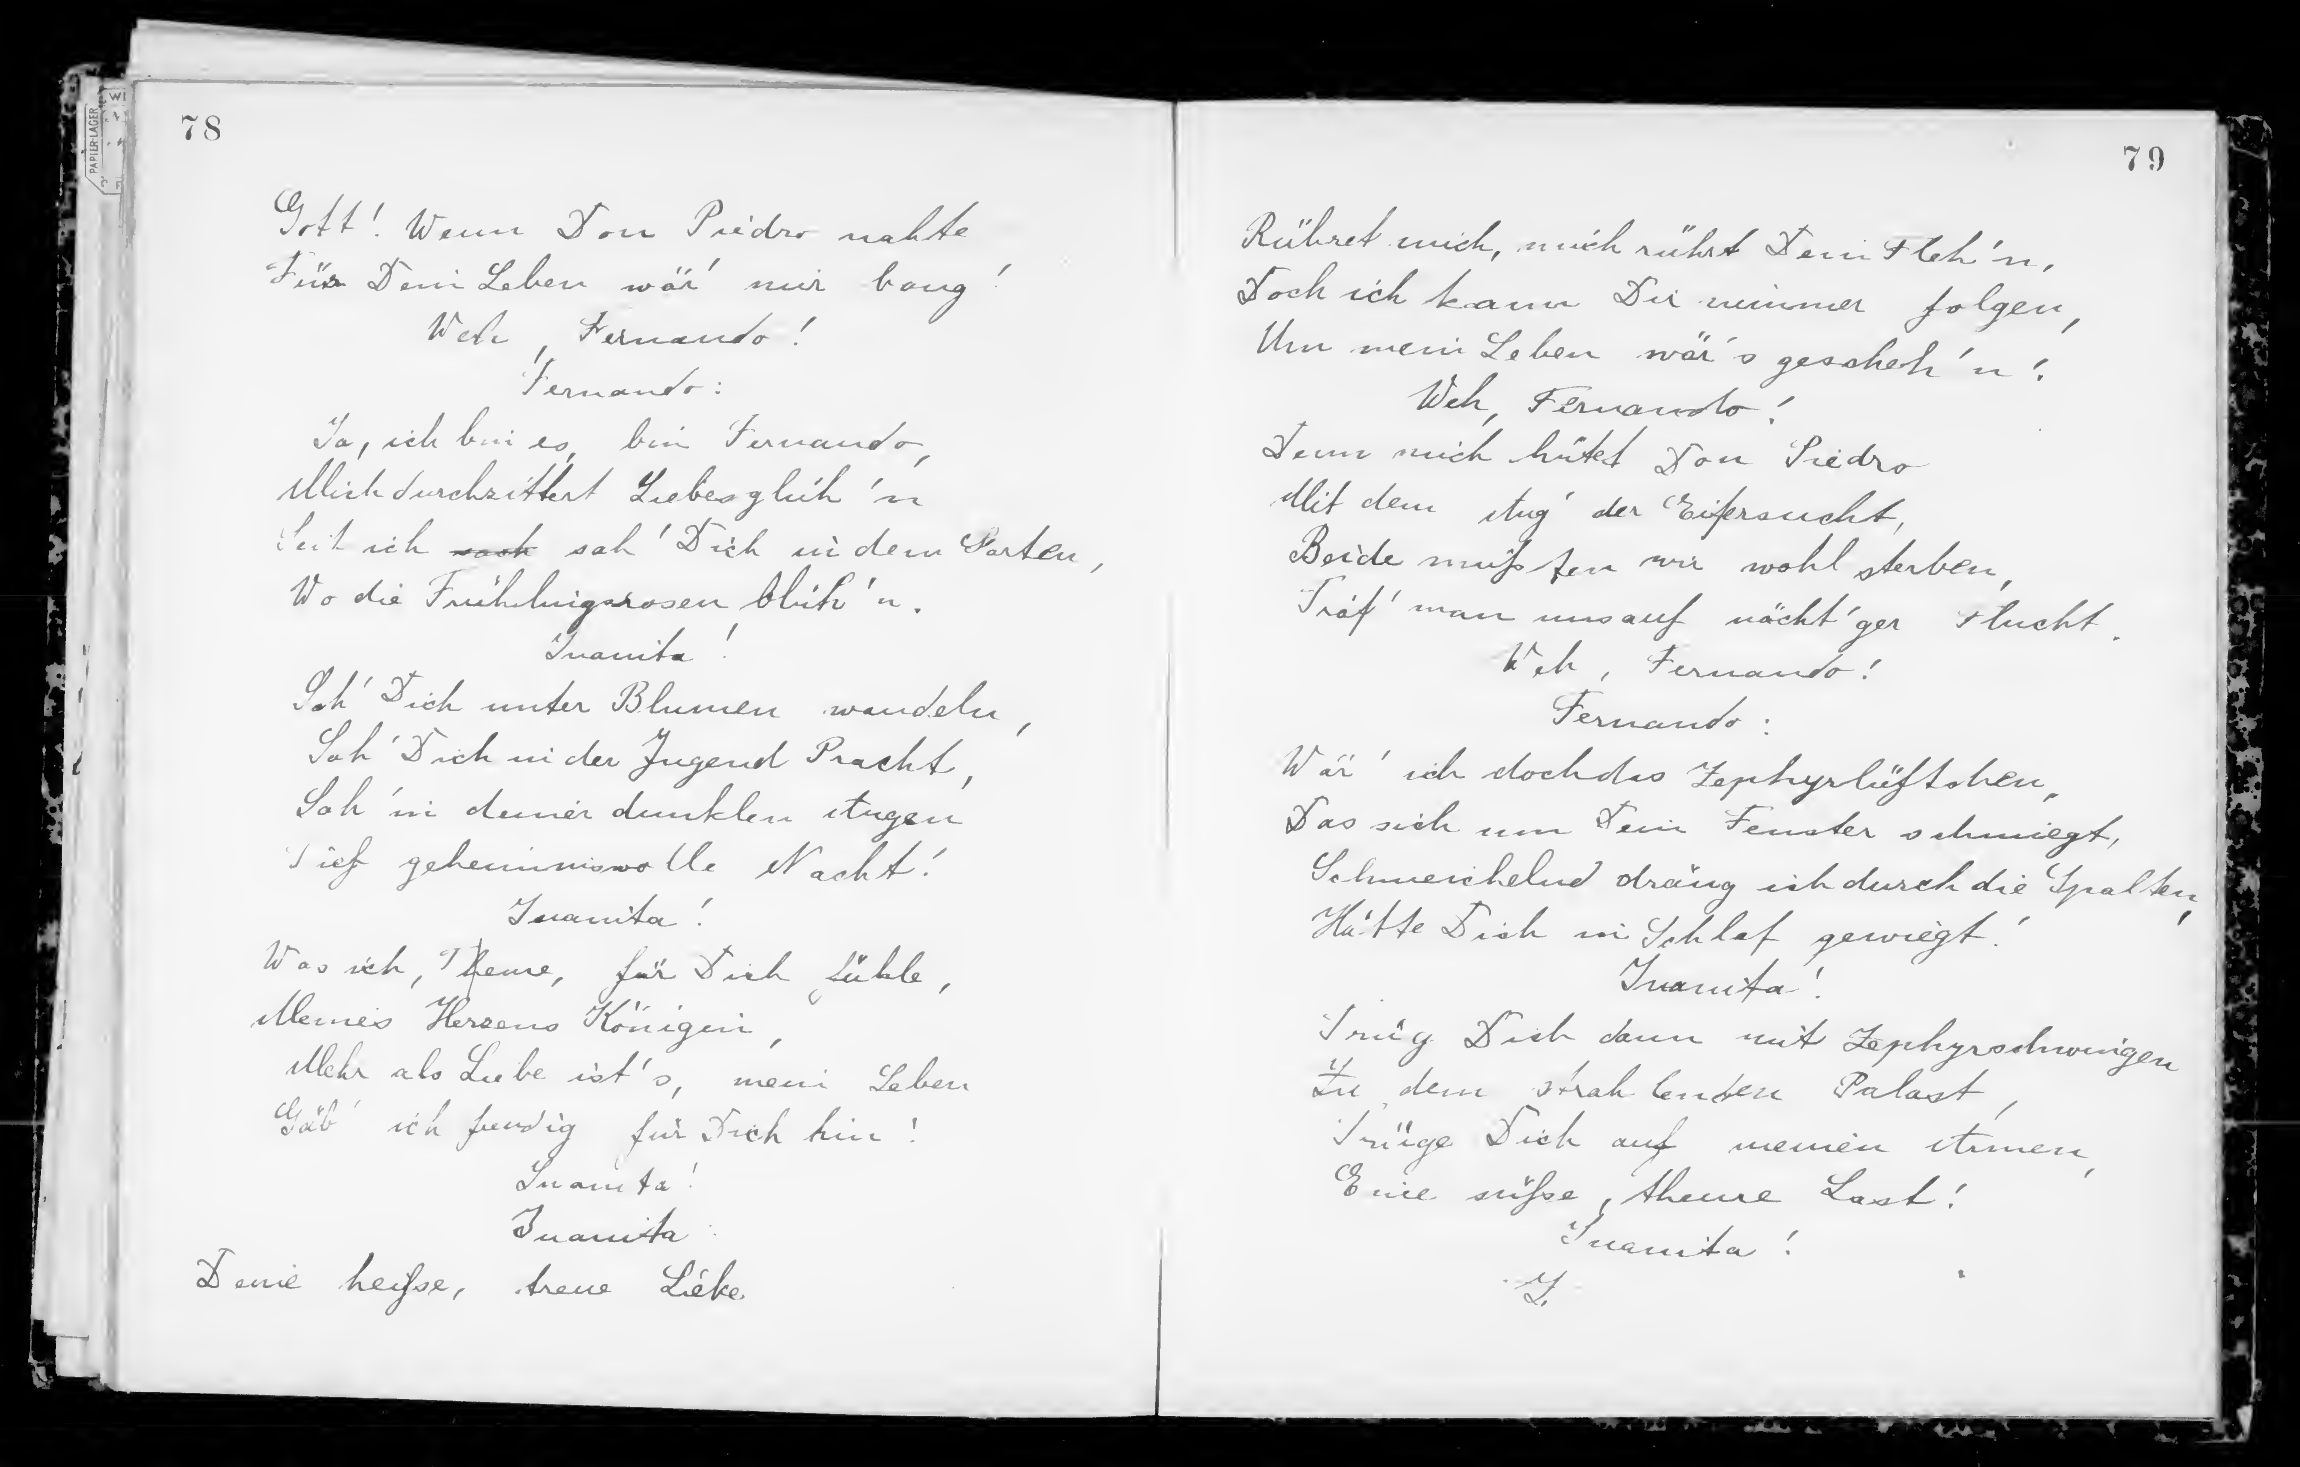 78
PAPIER-LAGER
WI
Gott! Wenn Don Piedro nahte
Für Dein Leben wär' mir bang!
Weh, Fernando!
Fernando:
Ja, ich bin es, bin Fernando,
Mich durchzittert Liebesglüh'n
Seit ich sah' Dich in dem Garten,
Wo die Frühlingsrosen blüh'n.
Juanita!
Sah' Dich unter Blumen wandeln,
Sah' Dich in der Jugend Pracht,
Sah' in deiner dunklen Augen
Tief geheimnisvolle Nacht!
Juanita!
Was ich, Theure, für Dich fühle,
Meines Herzens Königin,
Mehr als Liebe ist's, mein Leben
Gäb' ich freudig für Dich hin!
Juanita!
Juanita:
Deine heiße, treue Liebe
79
Rühret mich, mich rührt Dein Fleh'n,
Doch ich kann Dir nimmer folgen,
Um mein Leben wär's gescheh'n!
Weh, Fernando!
Denn mich hütet Don Piedro
Mit dem Aug' der Eifersucht,
Beide müßten wir wohl sterben,
Träf' man uns auf nächt'ger Flucht.
Weh, Fernando!
Fernando:
Wär' ich doch das Zephyrlüftchen,
Das sich um Dein Fenster schmiegt,
Schmeichelnd dräng ich durch die Spalten,
Hätte Dich in Schlaf gewiegt!
Juanita!
Trüg Dich dann mit Zephyrschwingen
Zu dem strahlenden Palast,
Trüge Dich auf meinen Armen,
Eine süße, theure Last!
Juanita!
J.